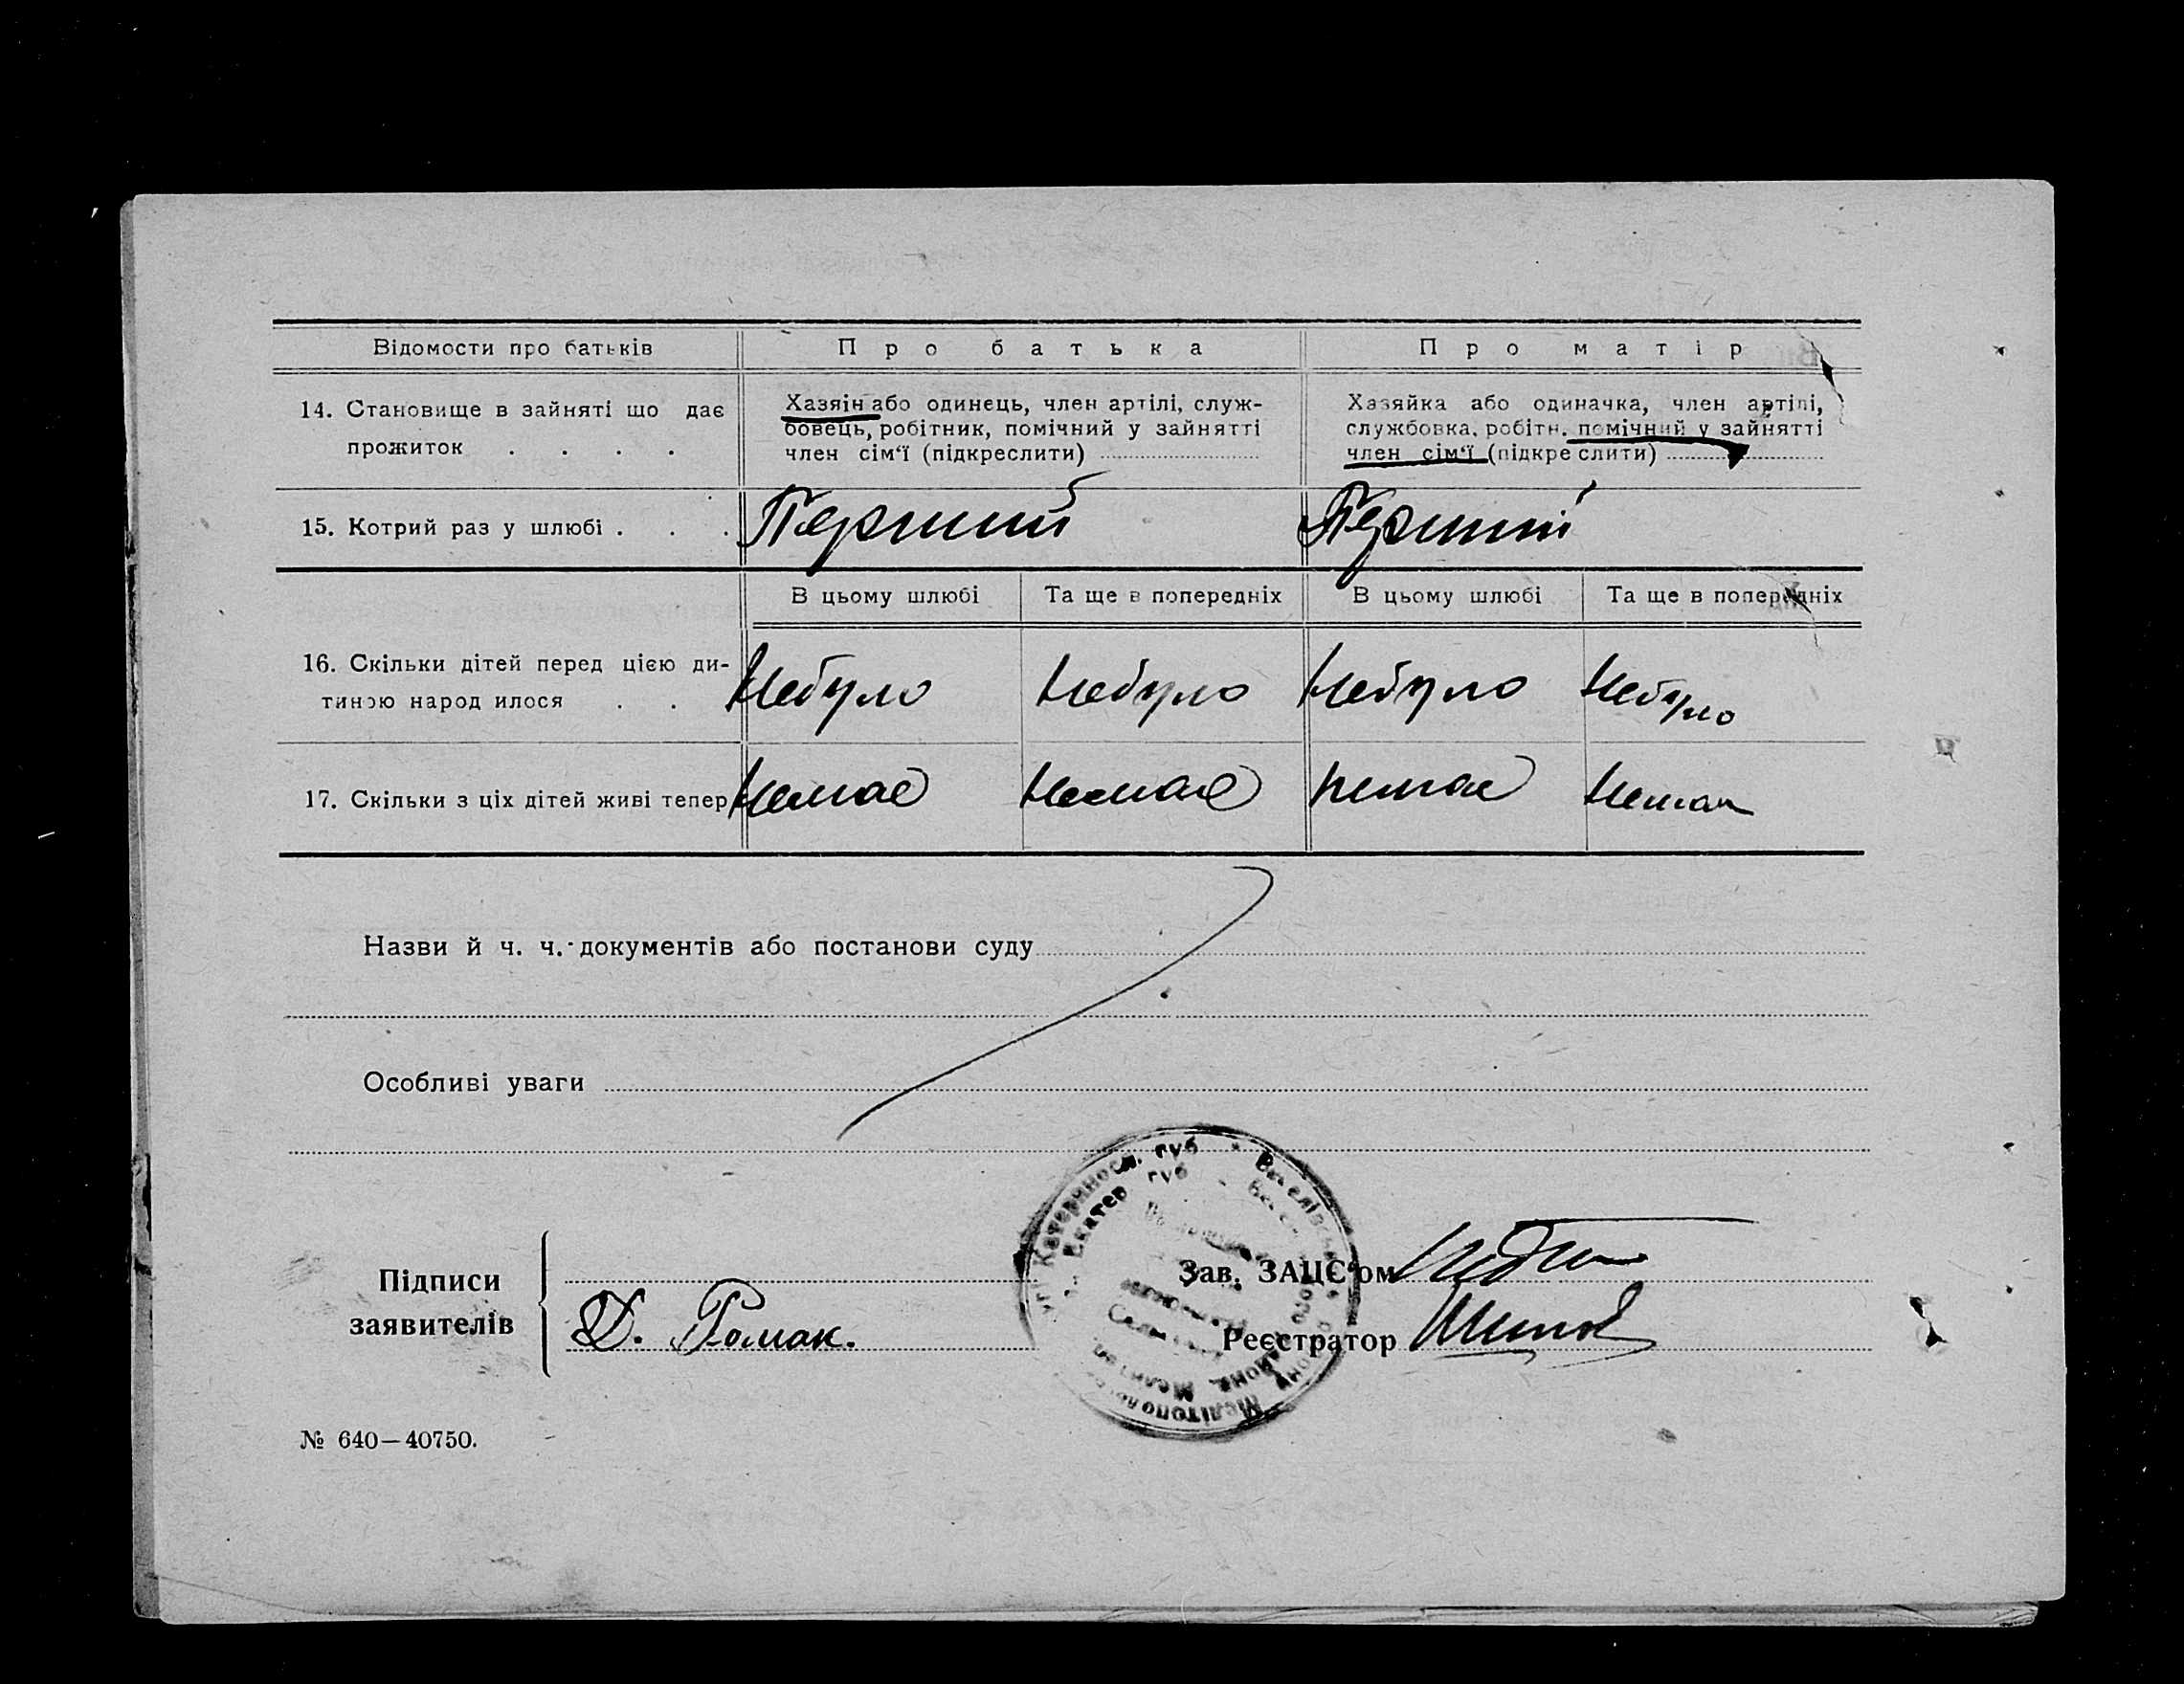 Відомости про батьків Про батька Про матір
14. Становище в зайняті що дає прожиток . . . .
Хазяін або одинець, член артілі, служ-
бовець, робітник, помічний у зайнятті
член сім'ї (підкреслити)
Хазяйка або одиначка, член артілі,
службовка, робітн. помічний у зайнятті
член сім'ї (підкреслити)
15. Котрий раз у шлюбі . . . Перший Перший
В цьому шлюбі Та ще в попередніх В цьому шлюбі Та ще в попередніх
16. Скільки дітей перед цією ди-
тиною народилося . . Небуло Небуло Небуло Небуло
17. Скільки з ціх дітей живі тепер Немає Немає Немає Немає
Назви й ч. ч. документів або постанови суду
Особливі уваги
Катериносл. губ
Екатер губ
Підписи
заявителів
Д. Ромак.
Зав. ЗАЦС'ом
Реєстратор
№ 640—40750.